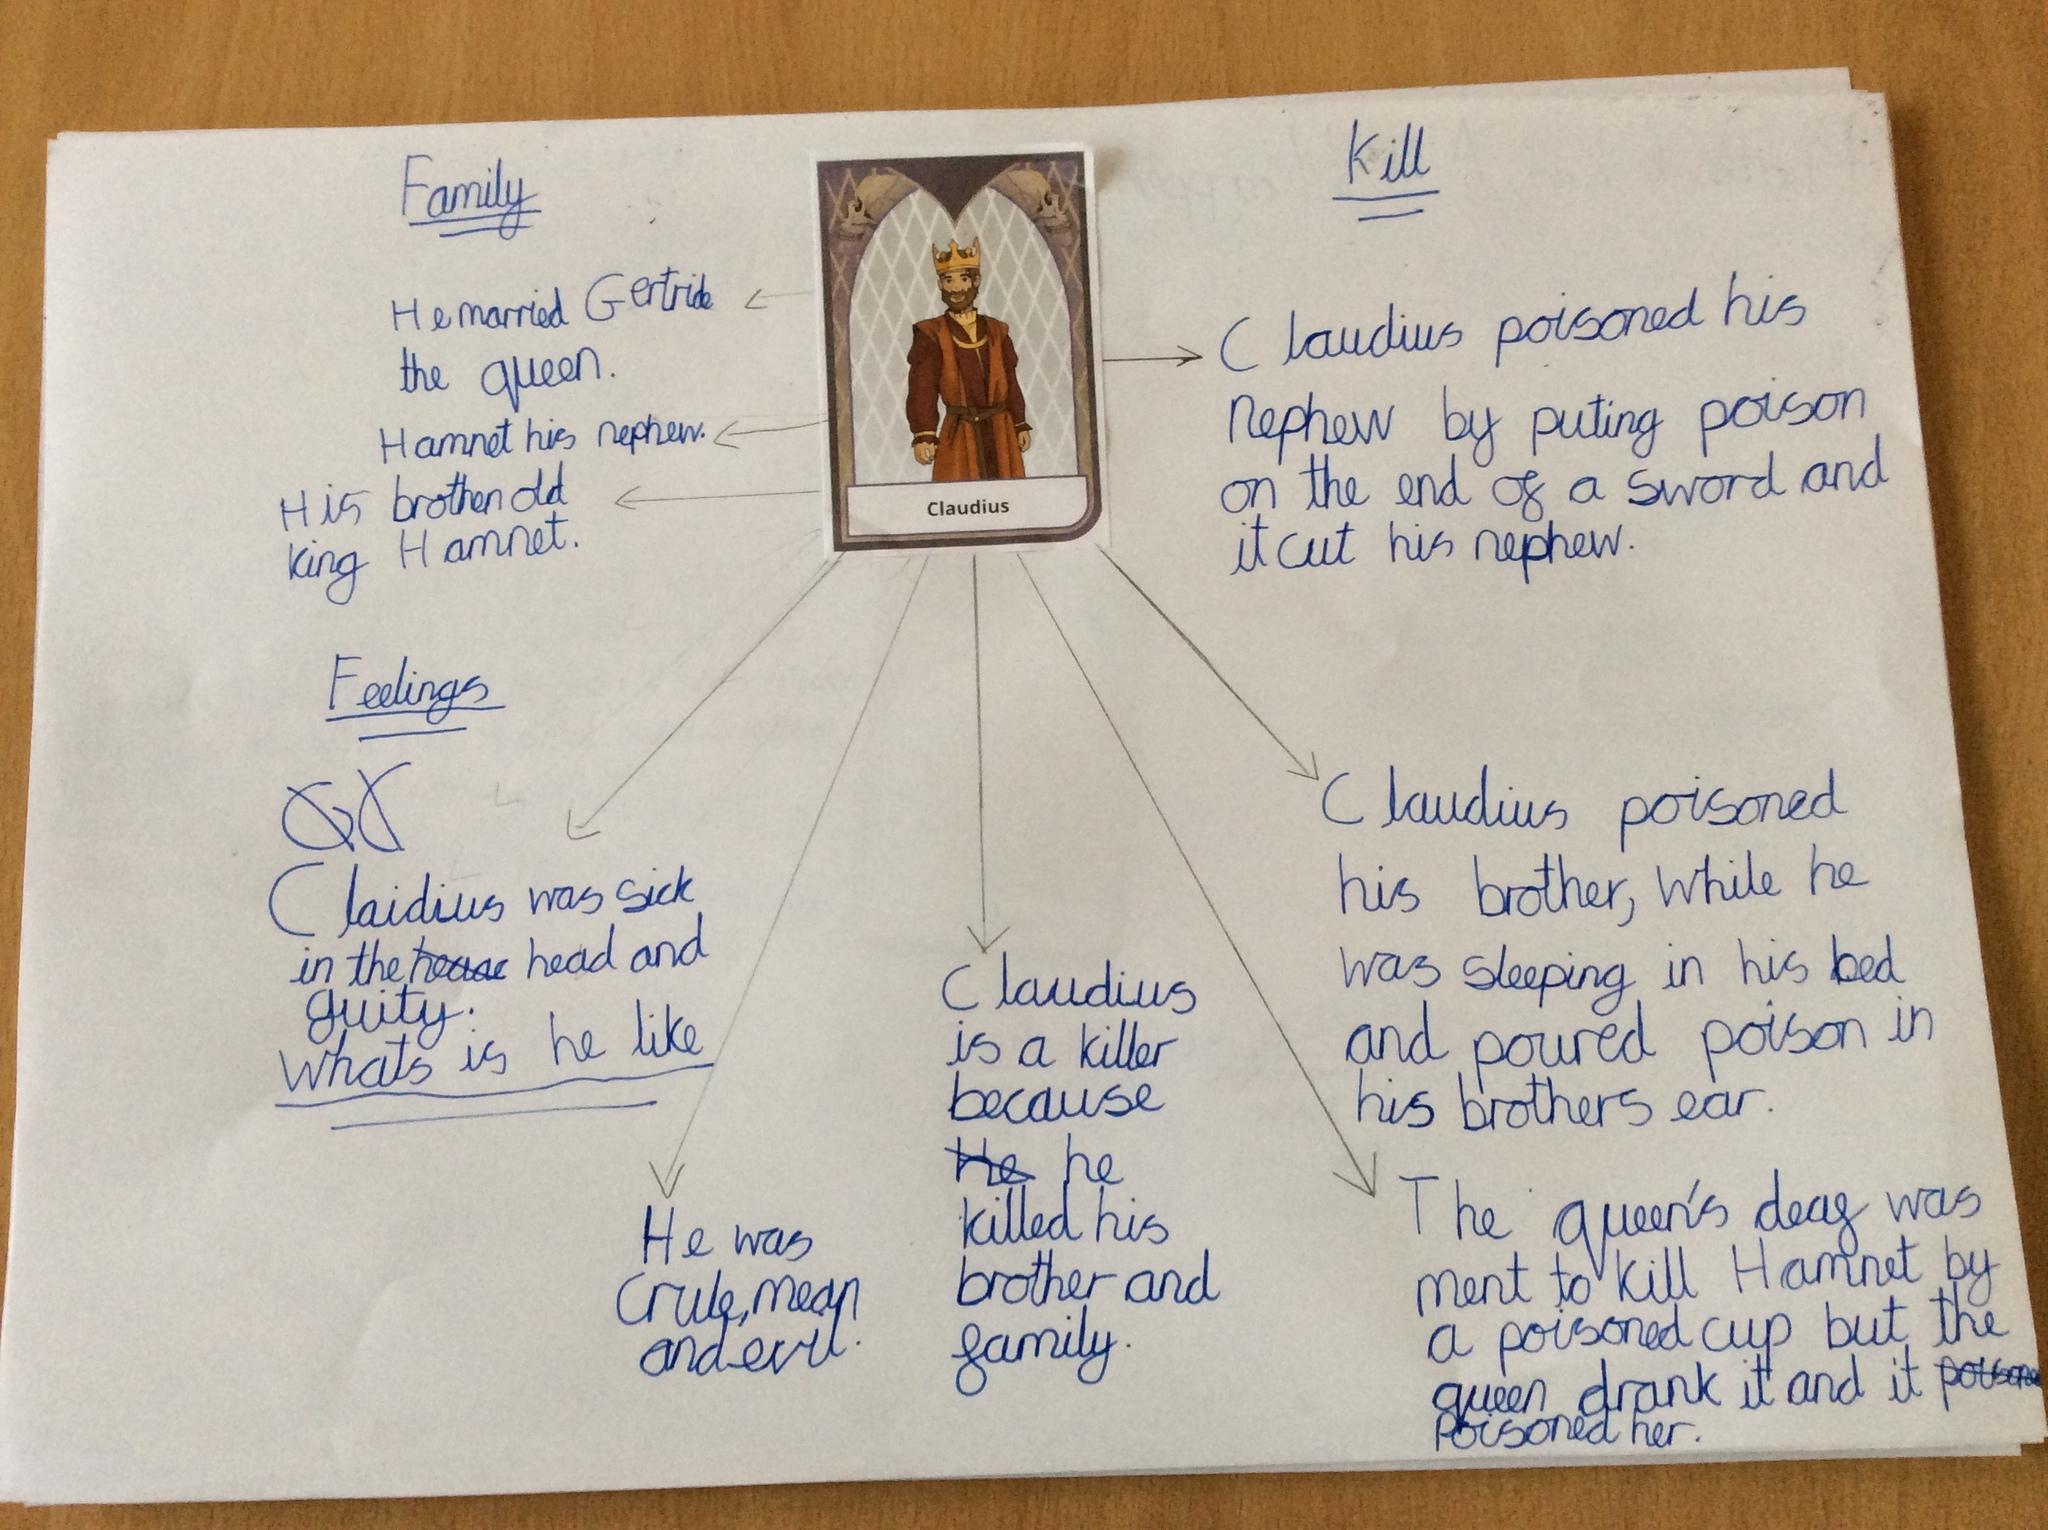 Family
He married Gertride
the queen.
Hamnet his nephew.
His brother old
king Hamnet.
Claudius
Kill
Claudius poisoned his
nephew by puting poison
on the end of a sword and
it cut his nephew.
Feelings
Claidius was sick
in the head and
guity.
whats is he like
He was
crule, mean
and evil.
Claudius
is a killer
because
He he
killed his
brother and
family.
Claudius poisoned
his brother, while he
was sleeping in his bed
and poured poison in
his brothers ear.
The queen's deag was
ment to kill Hamnet by
a poisoned cup but the
queen drank it and it
poisoned her.